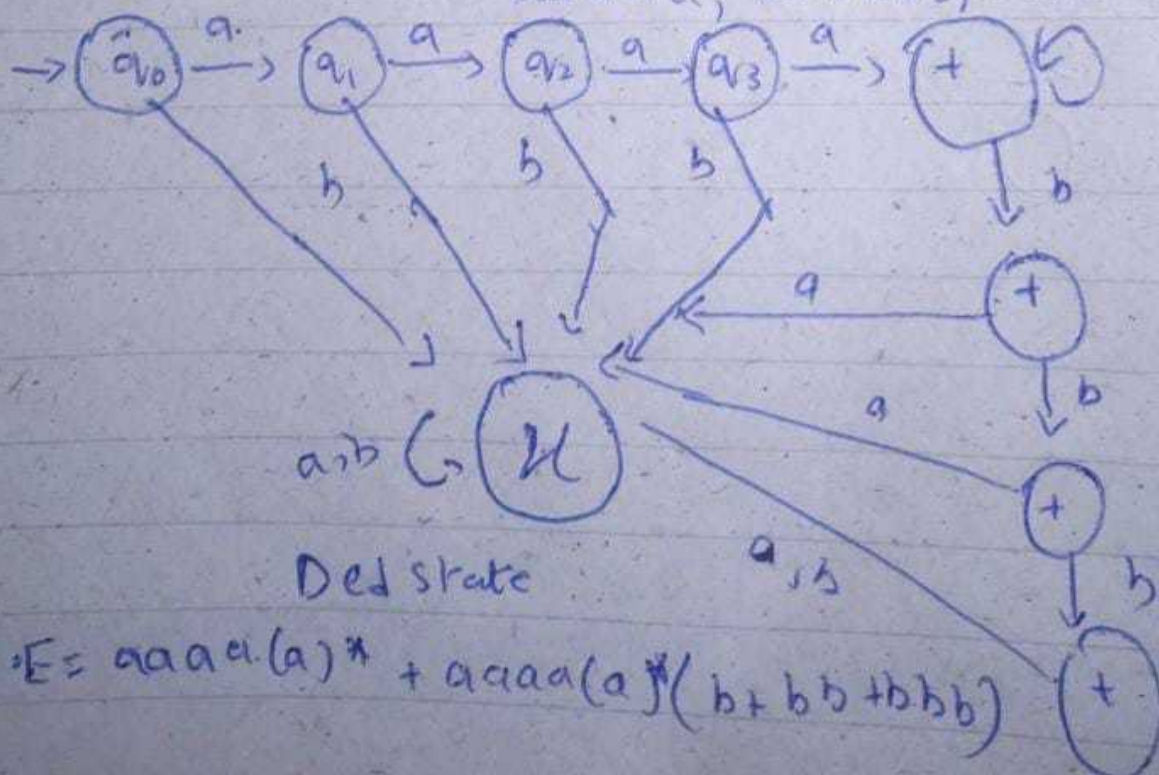 q0 a. q1 a q2 a q3 a +
b b b b
+
a
b
a
+
a,b
x
a,b
b
Ded state
+
E= aaaa.(a)* + aaaa(a)*(b+bb+bbb)